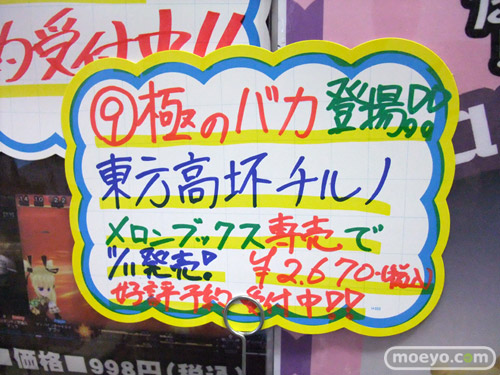 約受付中!!
⑨極のバカ 登場!!
東方高坏チルノ
メロンブックス専売で
11/11発売! ¥2.670-(税込)
好評予約受付中!!
■価格■998円(税込
moeyo.com